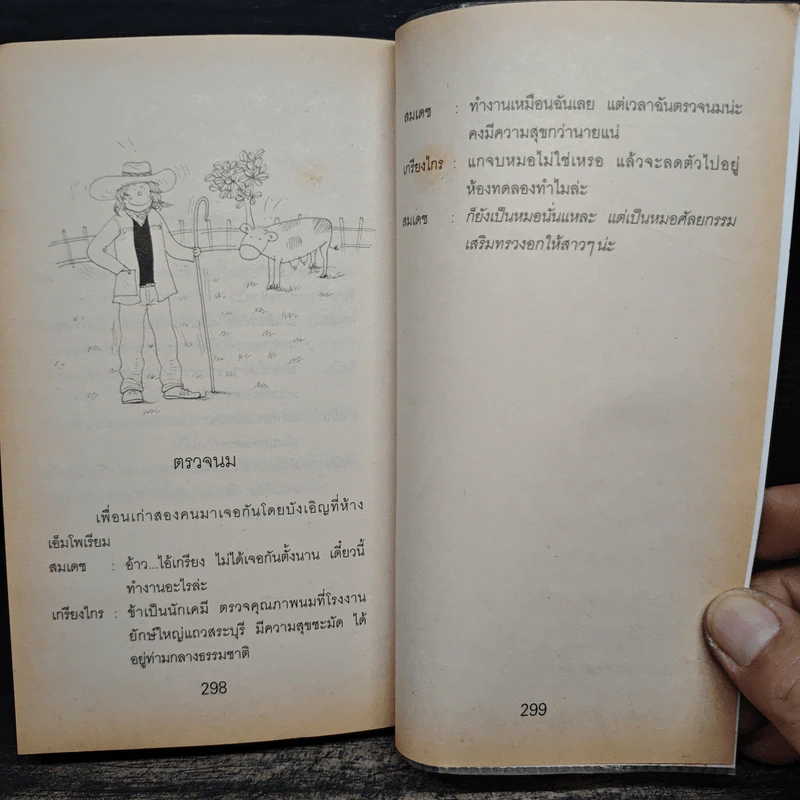 ตรวจนม
เพื่อนเก่าสองคนมาเจอกันโดยบังเอิญที่ห้าง
เอ็มโพเรียม
สมเดช : อ้าว...ไอ้เกรียง ไม่ได้เจอกันตั้งนาน เดี๋ยวนี้
ทำงานอะไรล่ะ
เกรียงไกร : ข้าเป็นนักเคมี ตรวจคุณภาพนมที่โรงงาน
ยักษ์ใหญ่แถวสระบุรี มีความสุขชะมัด ได้
อยู่ท่ามกลางธรรมชาติ
298
สมเดช : ทำงานเหมือนฉันเลย แต่เวลาฉันตรวจนมน่ะ
คงมีความสุขกว่านายแน่
เกรียงไกร : แกจบหมอไม่ใช่เหรอ แล้วจะลดตัวไปอยู่
ห้องทดลองทำไมล่ะ
สมเดช : ก็ยังเป็นหมอนั่นแหละ แต่เป็นหมอศัลยกรรม
เสริมทรวงอกให้สาวๆ น่ะ
299